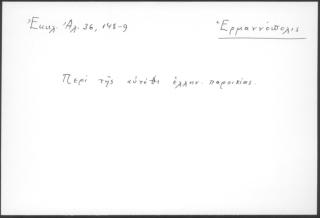 Ἐκκλ. Ἀλ. 36, 148-9
Ἑρμαννόπολις
Περὶ τῆς αὐτόθι ἑλλην. παροικίας.